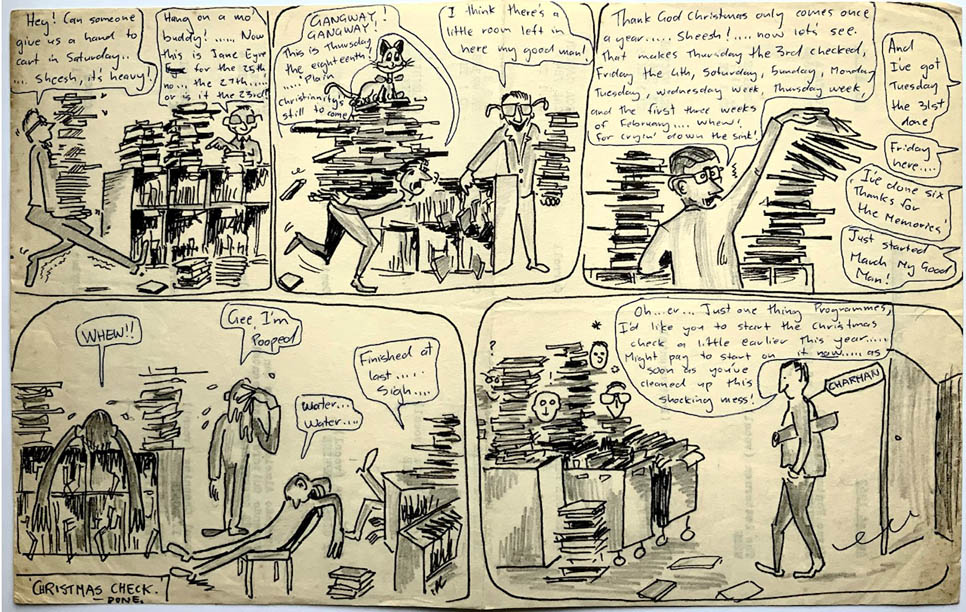 Hey! Can someone
give us a hand to
cart in Saturday..
.... sheesh, it's heavy!
Hang on a mo'
buddy! ..... Now
this is Jane Eyre
for the 25th
no... the 27th....
or is it the 23rd!
GANGWAY!
GANGWAY!
This is Thursday
the eighteenth
'Plain
Christianity's
still to come
I think there's a
little room left in
here my good man!
Thank God Christmas only comes once
a year..... Sheesh! .... now lets see.
That makes Thursday the 3rd checked,
Friday the 4th, Saturday, Sunday, Monday
Tuesday, Wednesday week, Thursday week,
and the first three weeks
of February.... whew!
for cryin' down the sink!
And
I've got
Tuesday
the 31st
done
Friday
here....
I've done six
Thanks for
the Memories!
Just started
March My Good
Man!
WHEW!!
Gee, I'm
Pooped
Water...
Water....
Finished at
last.....
Sigh....
'CHRISTMAS CHECK.'
- DONE.
Oh...er... Just one thing Programmes,
I'd like you to start the Christmas
check a little earlier this year.....
Might pay to start on it now.... as
soon as you've
cleaned up this
shocking mess!
?
*
CHAIRMAN